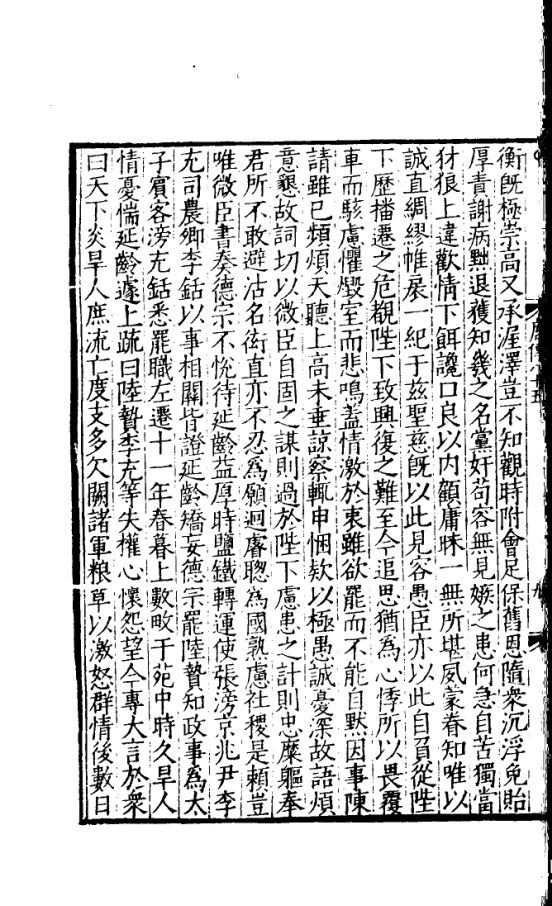 衡既極崇高又承渥澤豈不知觀時附會足保舊恩隨衆沉浮免貽
厚責謝病黜退獲知幾之名黨奸苟容無見嫉之患何急自苦獨當
豺狼上違歡情下餌讒口良以内顧庸昧一無所堪夙蒙眷知唯以
誠直綢繆帷扆一紀于兹聖慈既以此見容愚臣亦以此自負從陛
下歷播遷之危覩陛下致興復之難至今追思猶為心悸所以畏覆
車而駭慮懼燬室而悲鳴蓋情激於衷雖欲罷而不能自默因事陳
請雖已頻煩天聽上高未垂諒察輒申悃欵以極愚誠憂深故語煩
意懇故詞切以微臣自固之謀則過於陛下慮患之計則忠糜軀奉
君所不敢避沽名衒直亦不忍為願迴睿聰為國熟慮社稷是賴豈
唯微臣書奏德宗不悅待延齡益厚時鹽鐵轉運使張滂京兆尹李
充司農卿李銛以事相關皆證延齡矯妄德宗罷陸贄知政事為太
子賓客滂充銛悉罷職左遷十一年春暮上數畋于苑中時久旱人
情憂惴延齡遽上疏曰陸贄李充等失權心懷怨望今專大言於衆
曰天下炎旱人庶流亡度支多欠闕諸軍粮草以激怒群情後數日